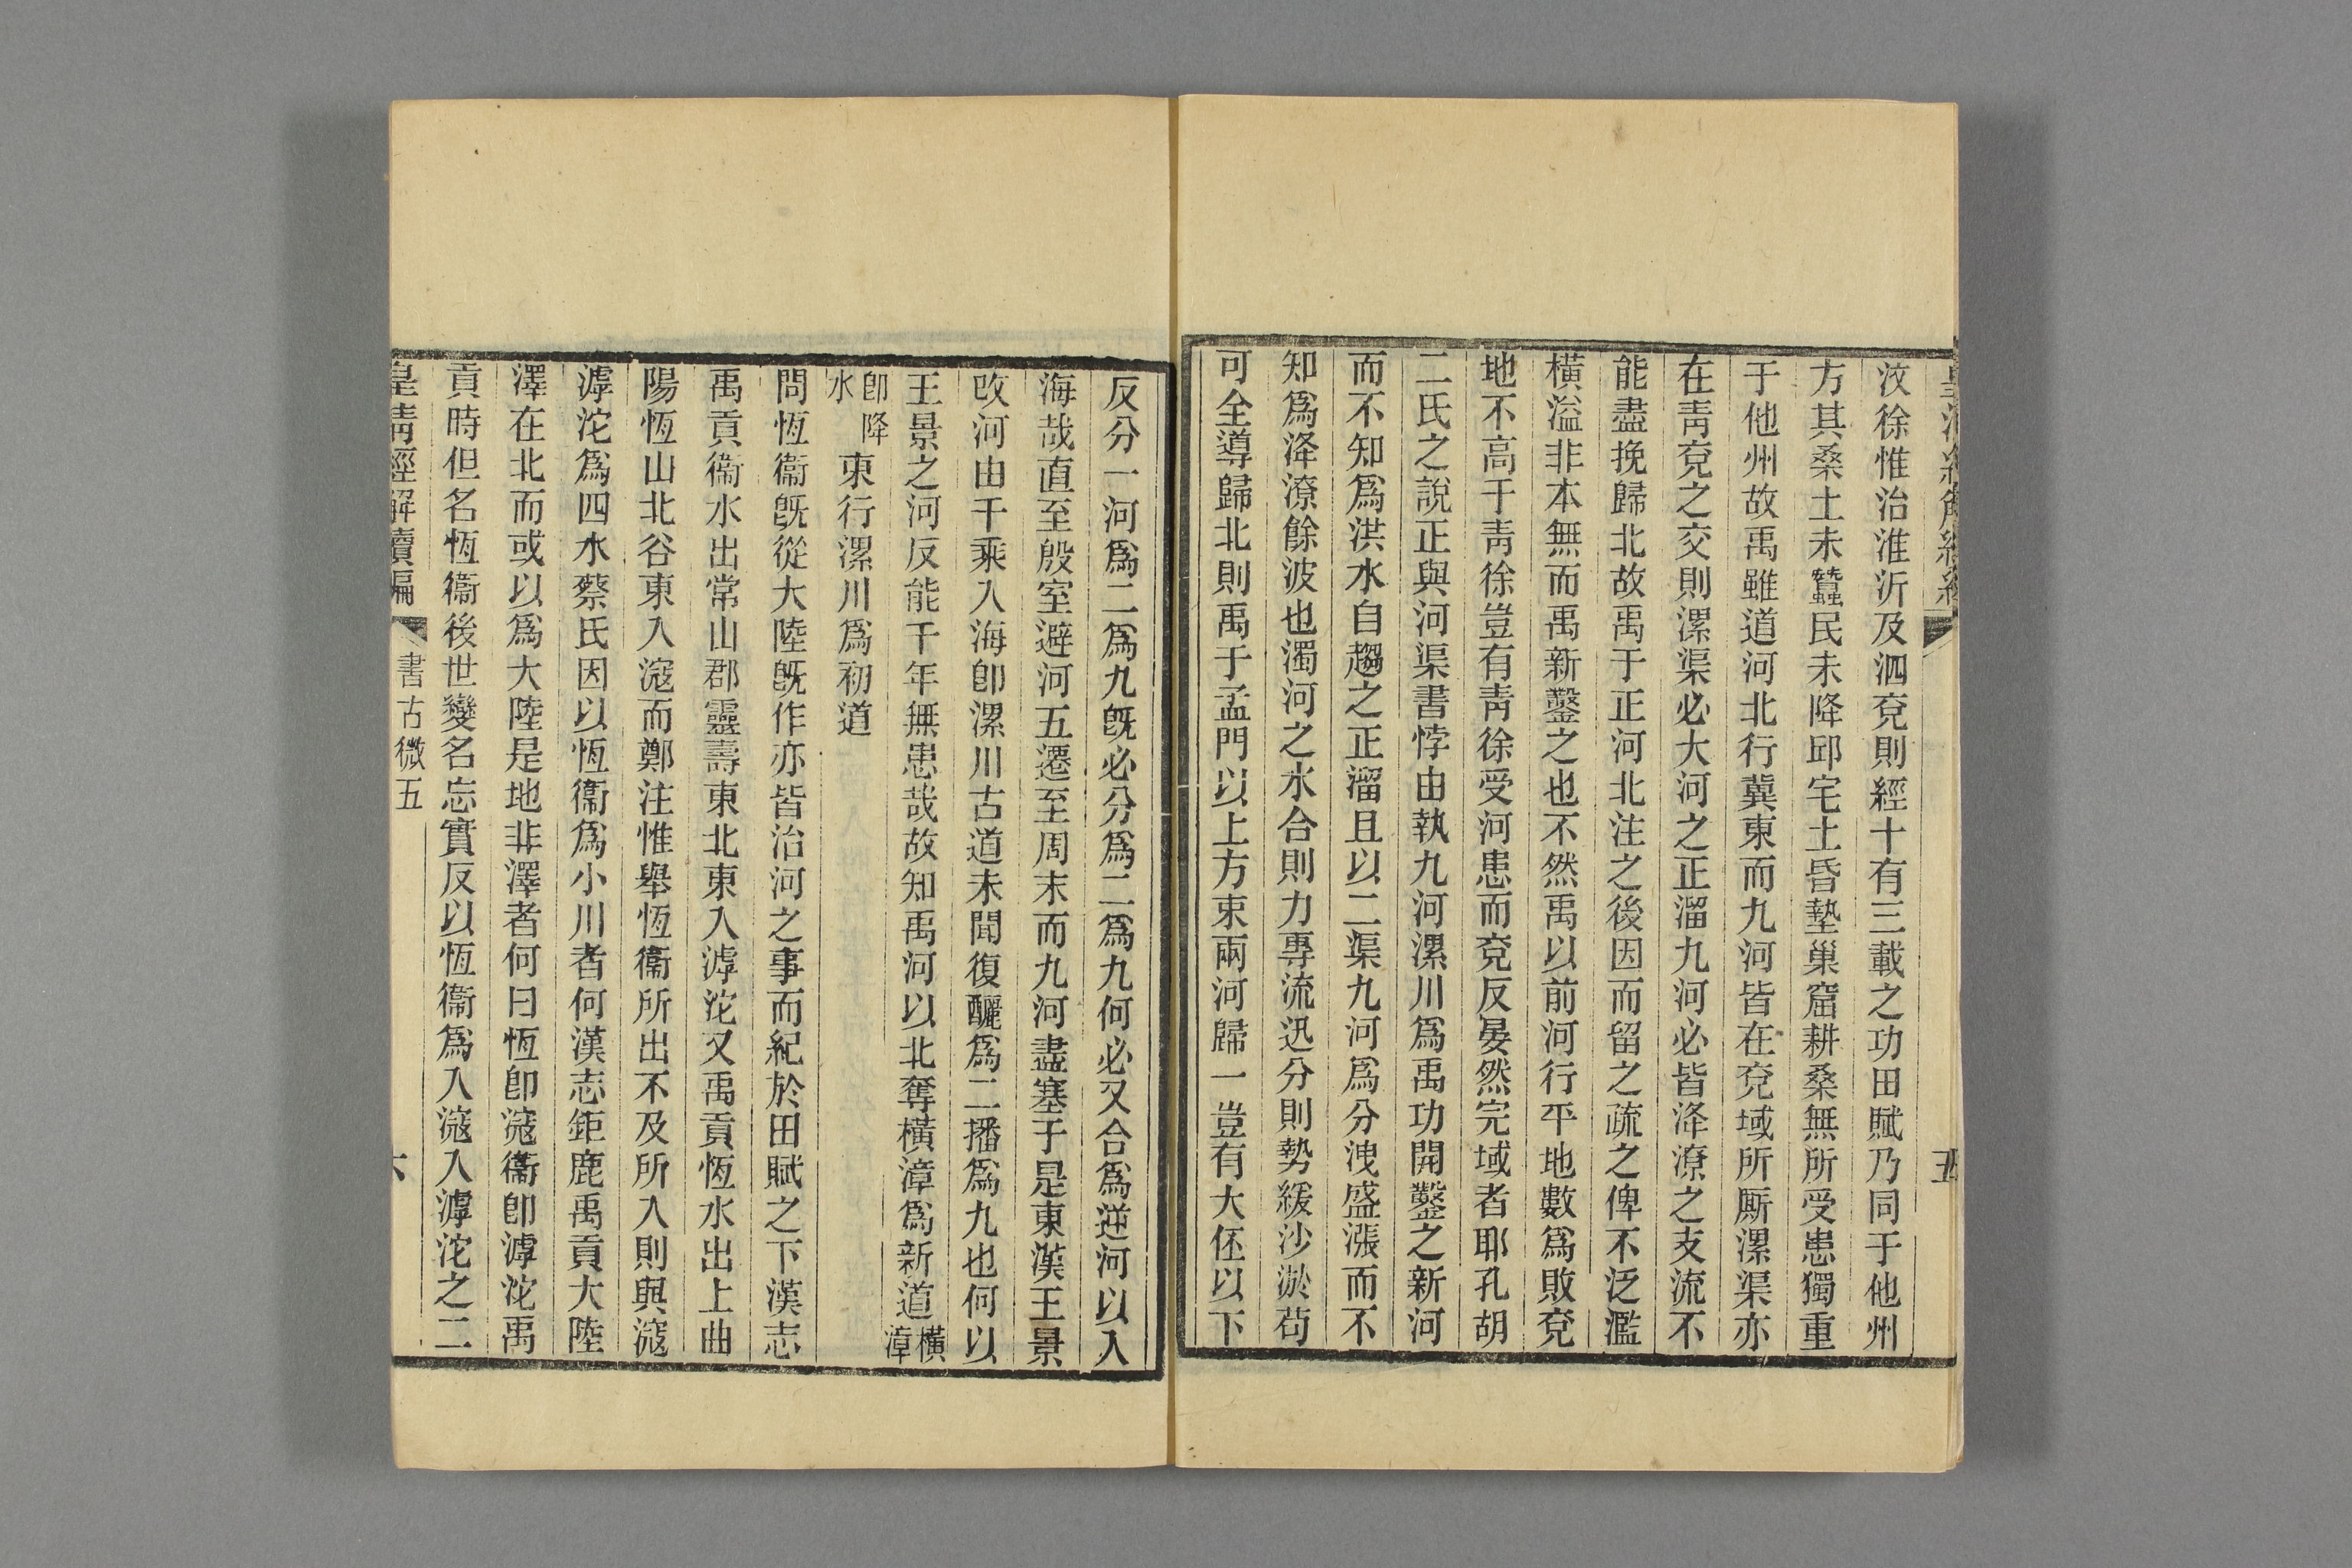 五
汶徐惟治淮沂及泗兗則經十有三載之功田賦乃同于他州
方其桑土未蠶民未降邱宅土昏墊巢窟耕桑無所受患獨重
于他州故禹雖道河北行冀東而九河皆在兗域所厮漯渠亦
在靑兗之交則漯渠必大河之正溜九河必皆洚潦之支流不
能盡挽歸北故禹于正河北注之後因而留之疏之俾不泛濫
橫溢非本無而禹新鑿之也不然禹以前河行平地數爲敗兗
地不高于靑徐豈有靑徐受河患而兗反晏然完域者耶孔胡
二氏之說正與河渠書悖由執九河漯川爲禹功開鑿之新河
而不知爲洪水自趨之正溜且以二渠九河爲分洩盛漲而不
知爲洚潦餘波也濁河之水合則力專流迅分則勢緩沙淤苟
可全導歸北則禹于孟門以上方束兩河歸一豈有大伾以下
反分一河爲二爲九旣必分爲二爲九何必又合爲逆河以入
海哉直至殷室避河五遷至周末而九河盡塞于是東漢王景
改河由千乘入海卽漯川古道未聞復釃爲二播爲九也何以
王景之河反能千年無患哉故知禹河以北奪橫漳爲新道橫漳
卽降水東行漯川爲初道
問恆衞旣從大陸旣作亦皆治河之事而紀於田賦之下漢志
禹貢衞水出常山郡靈壽東北東入滹沱又禹貢恆水出上曲
陽恆山北谷東入滱而鄭注惟舉恆衞所出不及所入則與滱
滹沱爲四水蔡氏因以恆衞爲小川者何漢志鉅鹿禹貢大陸
澤在北而或以爲大陸是地非澤者何曰恆卽滱衞卽滹沱禹
貢時但名恆衞後世變名忘實反以恆衞爲入滱入滹沱之二
皇清經解續編
書古微五
六